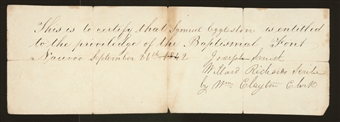 This is to certify that Samuel Eggleston is entitled
to the priviledge of the Baptismal Font
Nauvoo September 24th 1842
Joseph Smith
Willard Richards Scribe
by Wm Clayton Clerk